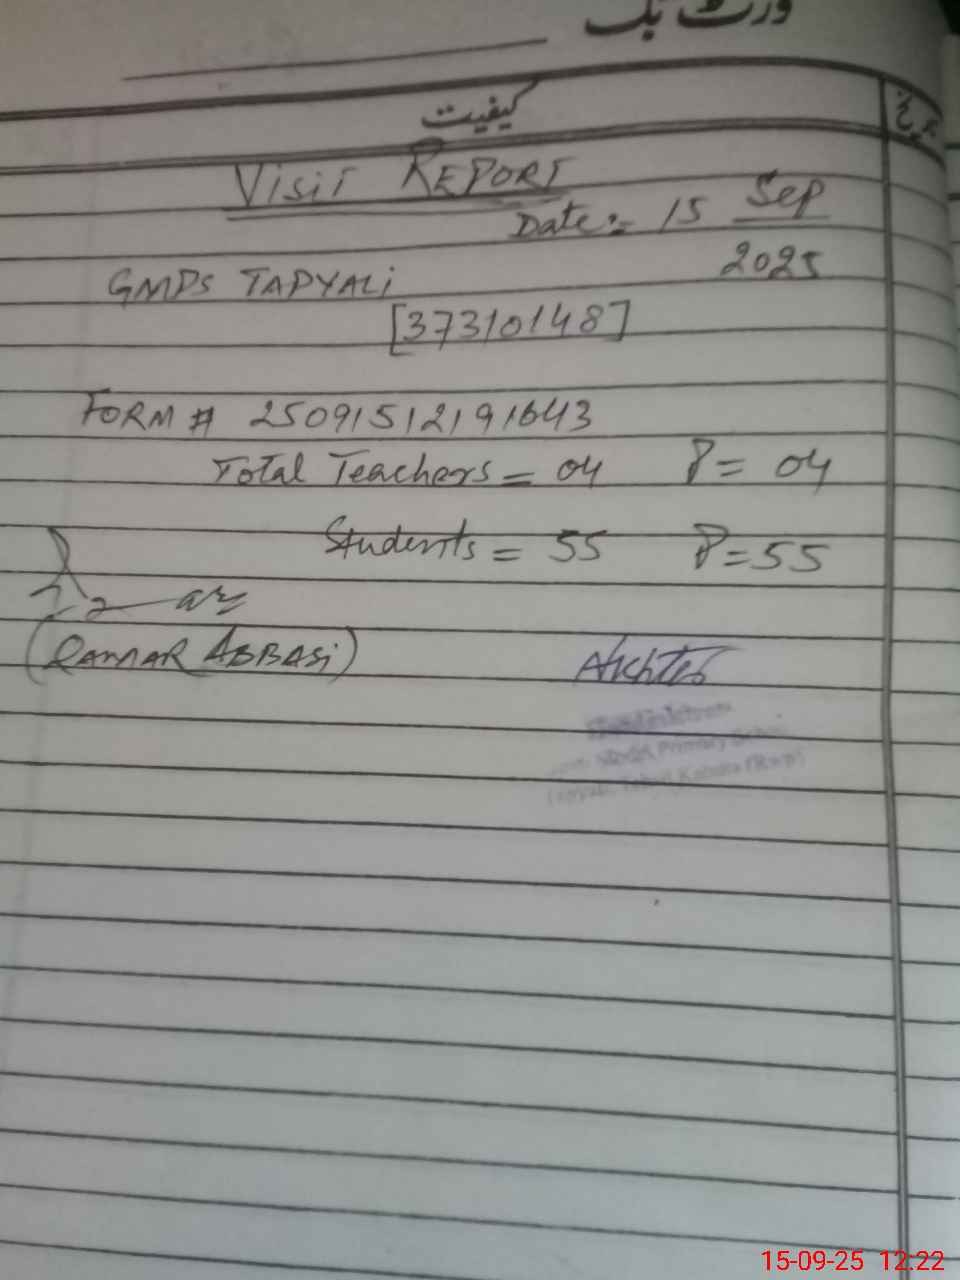 وزٹ بک
کیفیت
تاریخ
VISIT REPORT
Date:- 15 Sep
2025
GMPS TAPYALI
[37310148]
FORM # 25091512191643
Total Teachers = 04 P = 04
Students = 55 P = 55
(QAMAR ABBASI)
Akhter
Primary School
15-09-25 12:22